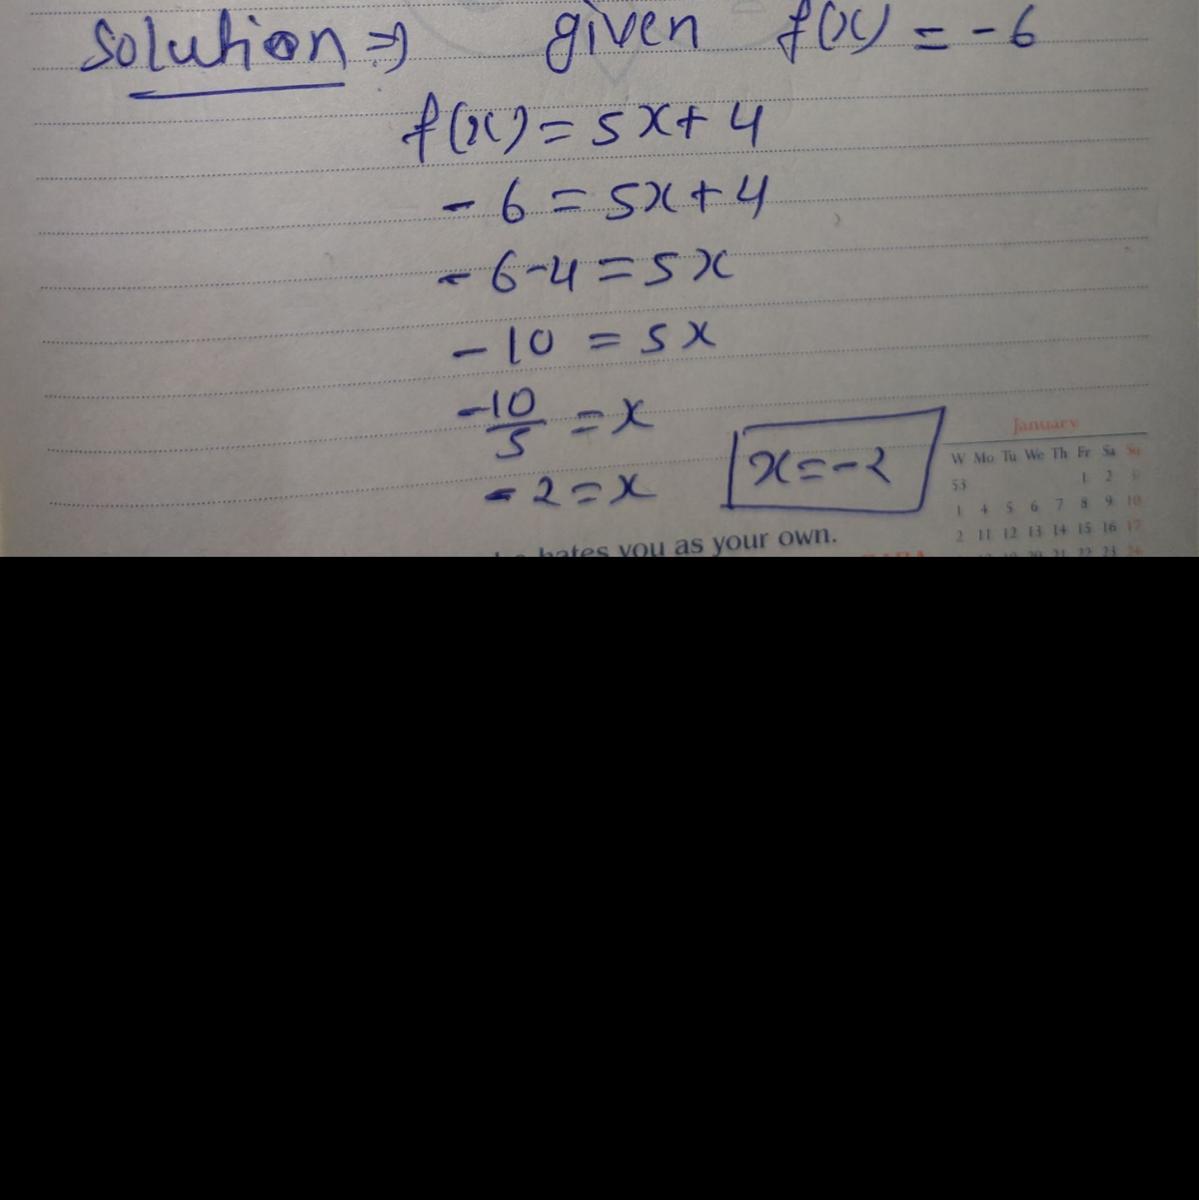 Solution ⇒ given f(x) = -6
f(x) = 5x + 4
- 6 = 5x + 4
- 6 - 4 = 5x
- 10 = 5x
-10/5 = x
- 2 = x x = -2
hates you as your own.
January
W Mo Tu We Th Fr Sa Su
53 1 2
1 4 5 6 7 8 9 10
2 11 12 13 14 15 16 17